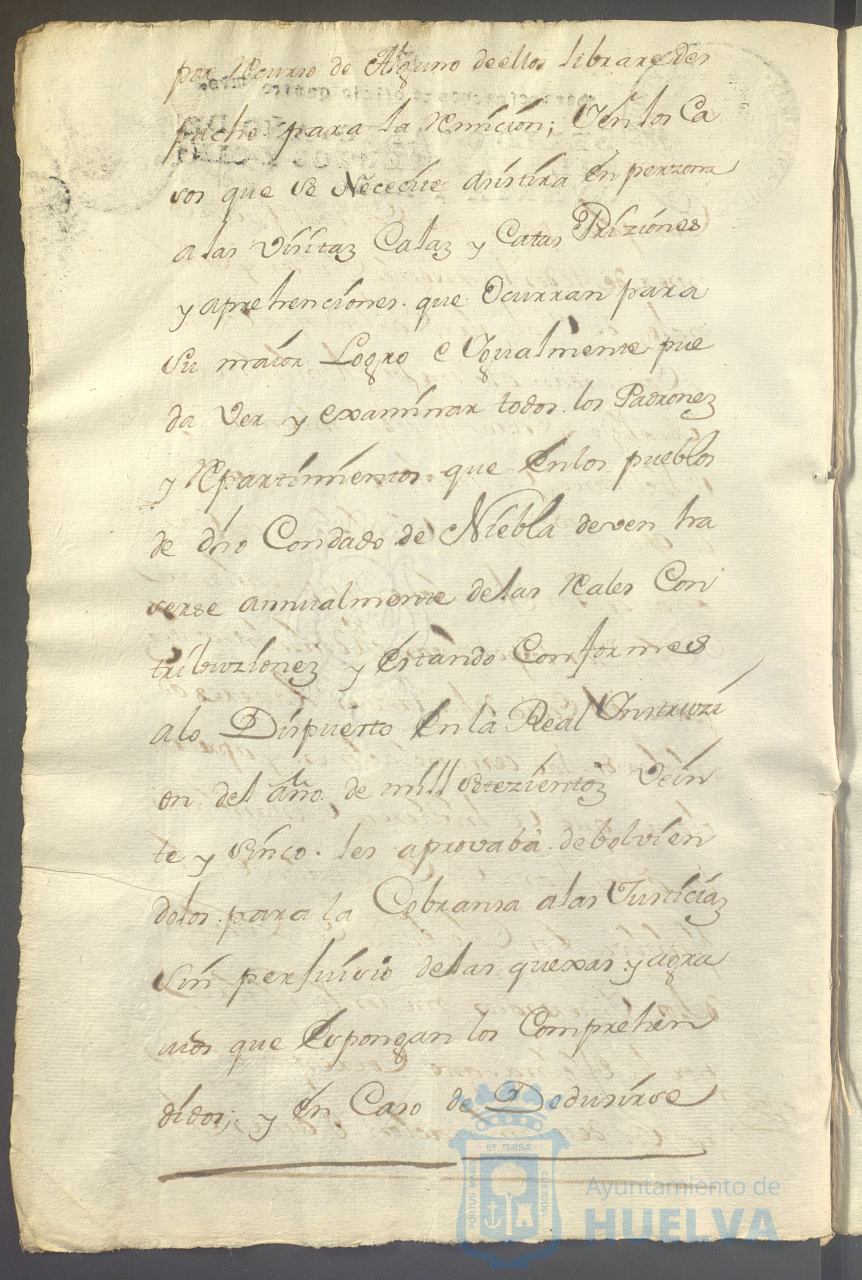 por Recurso de Alguno deellos librare des
pacho para la Remición; Y en los Ca
sos que se Nececite asistira en perzona
a las visitaz Calaz y Catas Priziónes
y aprehenciónes que Ocurran para
su maior Logro e Ygualmente pue
da ver y examinar todos los Padronez
y Repartimientos que en los pueblos
de dho Condado de Niebla deven ha
verse annualmente delas Rales Con
tribuzionez y estando Conformes
alo Dispuesto en la Real Ynstruzi
on del año de mill setezientoz vein
te y sinco les aprovaba debolvien
dolos para la Cobransa alas Justiciaz
sin perjuisio delas quexas y agra
vios que Espongan los Comprehen
didos; y en Caso de Dedusirse
PORTUS MARIS
ET TERRÆ
CUSTODIA
Ayuntamiento de
HUELVA